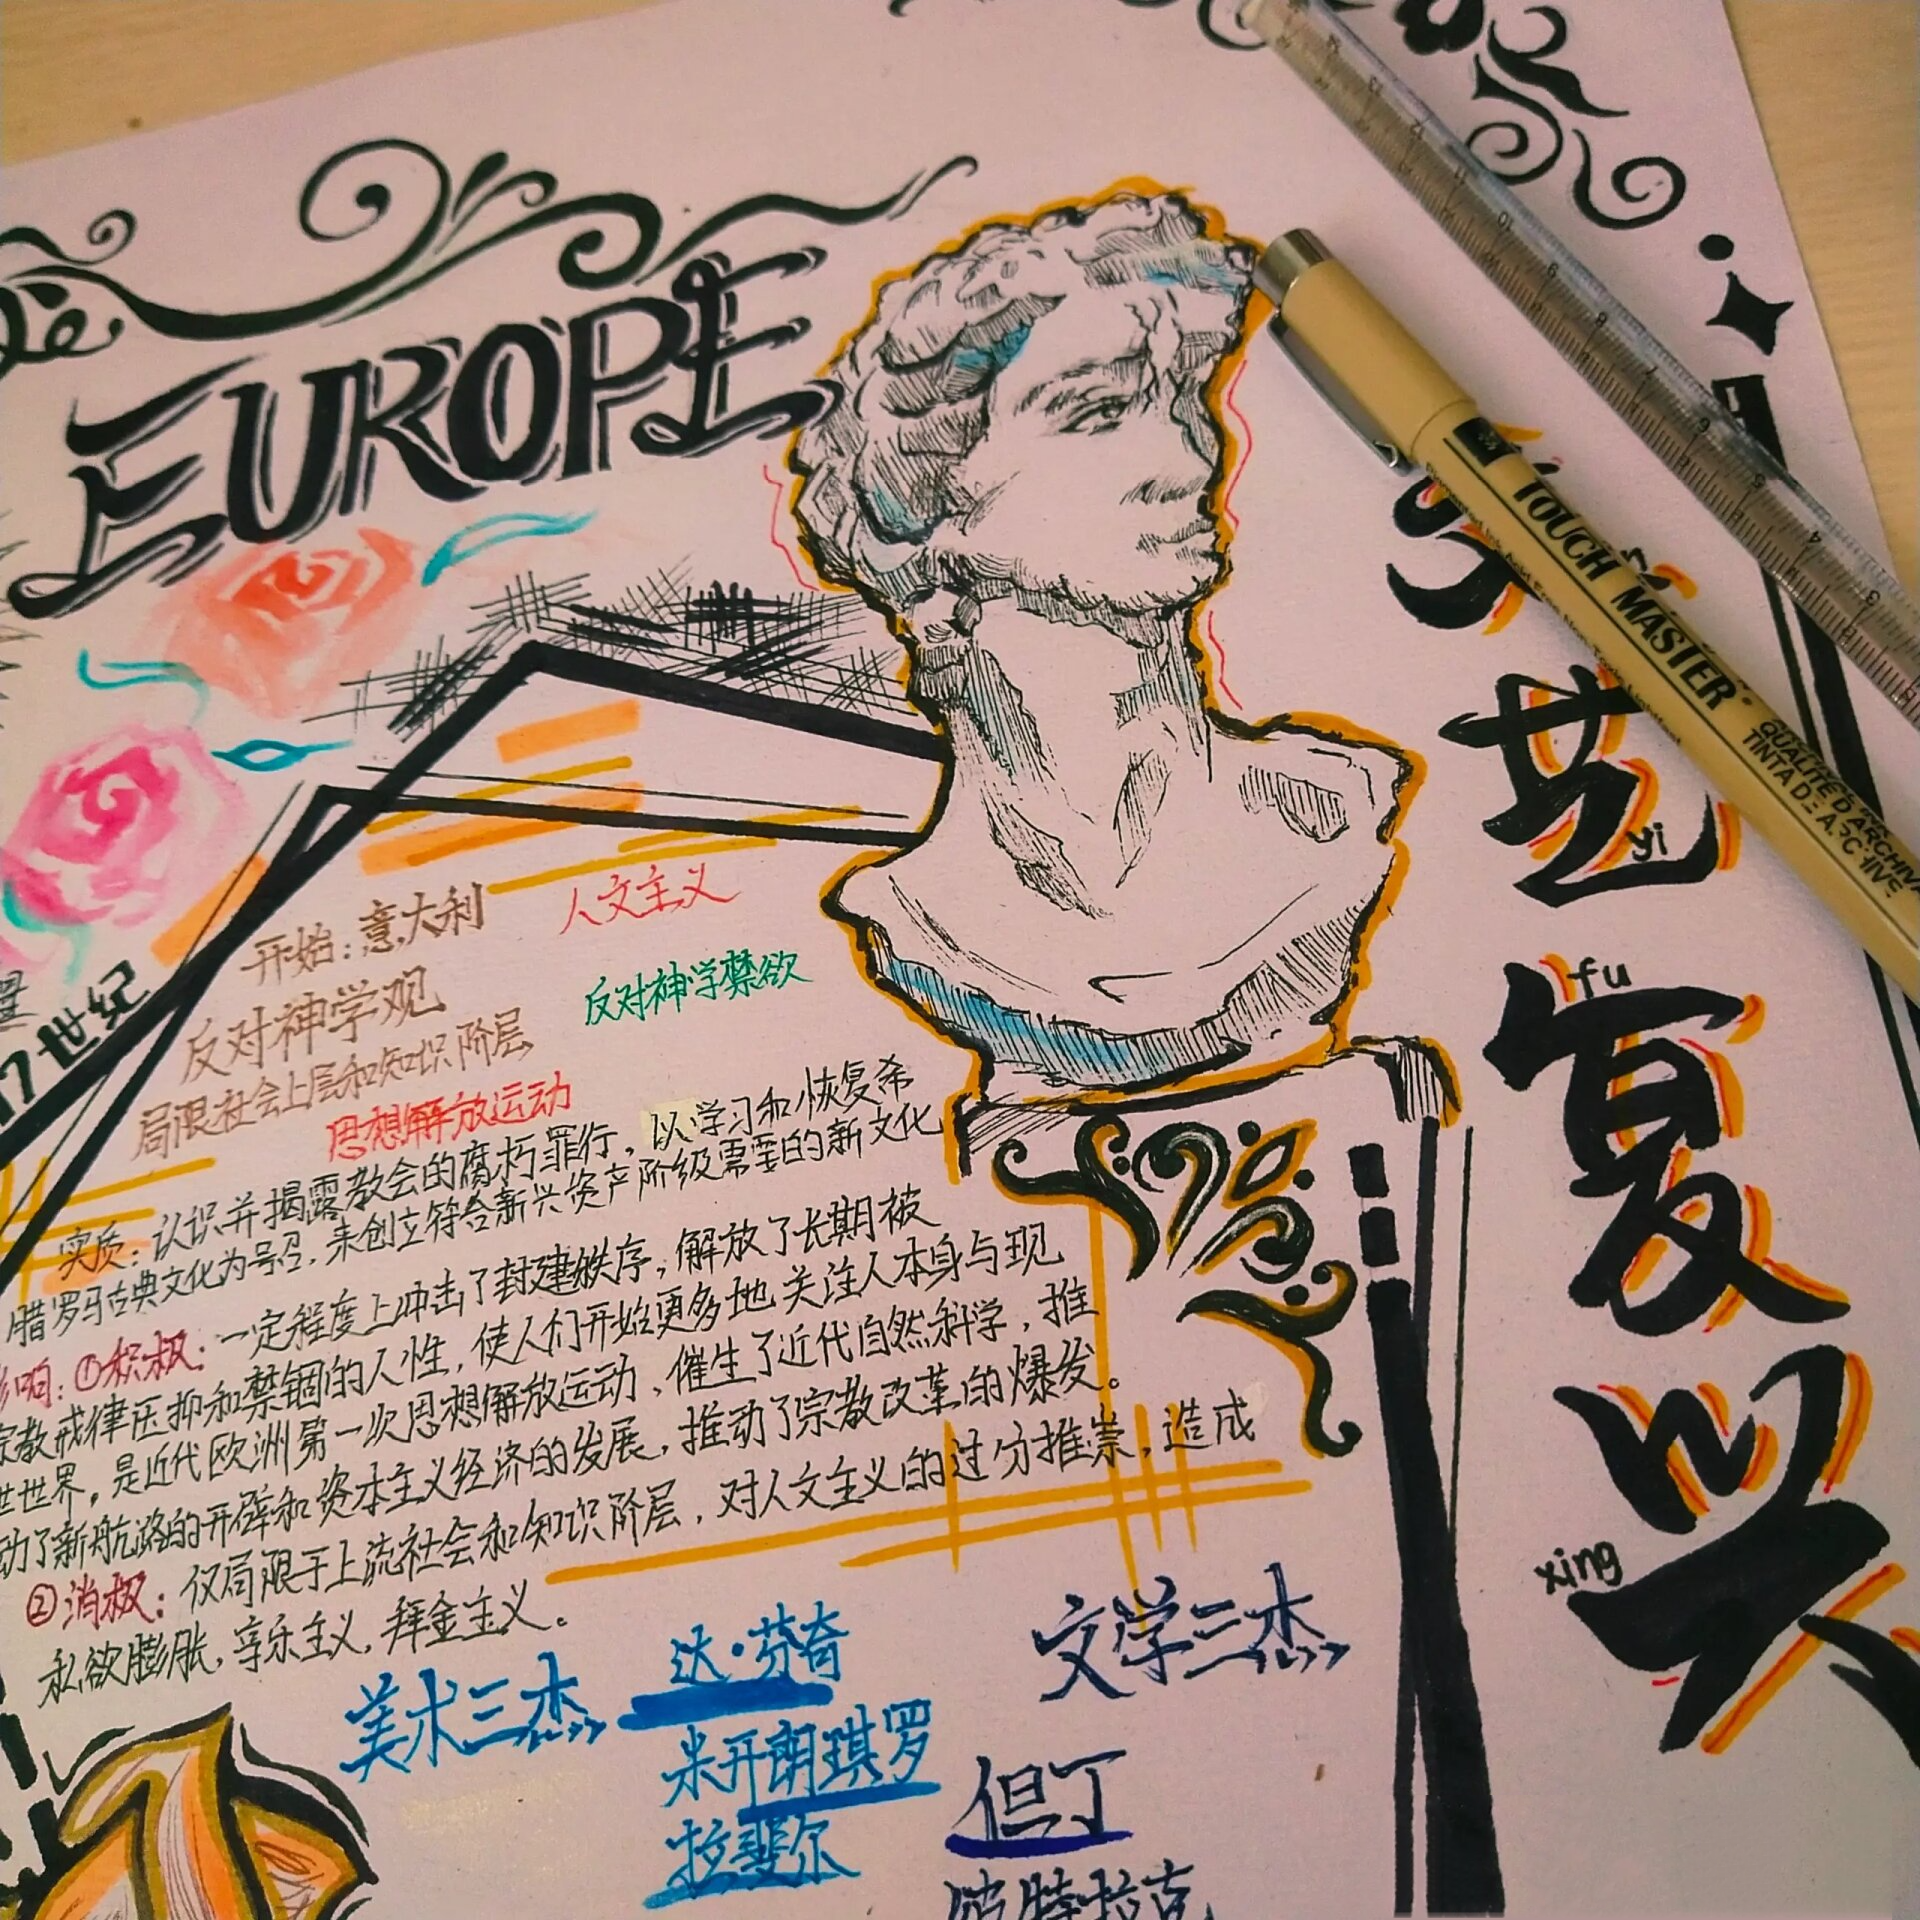 EUROPE
文艺复兴
yi
fu
xing
TOUCH MASTER
17世纪
开始：意大利
人文主义
反对神学观
反对神学禁欲
局限社会上层和知识阶层
思想解放运动
实质：认识并揭露教会的腐朽罪行，以学习和恢复希
腊罗马古典文化为号召，来创立符合新兴资产阶级需要的新文化
影响：①积极：一定程度上冲击了封建秩序，解放了长期被
宗教戒律压抑和禁锢的人性，使人们开始更多地关注人本身与现
世世界，是近代欧洲第一次思想解放运动，催生了近代自然科学，推
动了新航路的开辟和资本主义经济的发展，推动了宗教改革的爆发。
②消极：仅局限于上流社会和知识阶层，对人文主义的过分推崇，造成
私欲膨胀，享乐主义，拜金主义。
美术三杰
达·芬奇
米开朗琪罗
拉斐尔
文学三杰
但丁
彼特拉克